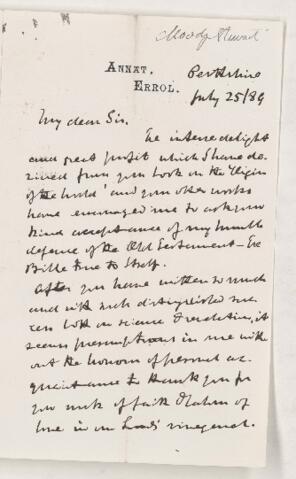 Moody Stuart
ANNAT,
ERROL.
Perthshire
July 25/89
My dear Sir,
The intense delight
and great profit which I have de-
rived from your book on the 'Origin
of the World' and your other works
have encouraged me to ask your
kind acceptance of my humble
defence of the Old Testament - The
Bible True to Itself.
After you have written so much
and with such distinguished suc-
cess both on science & revelation, it
seems presumptuous in me with-
out the honour of personal ac-
quaintance to thank you for
your work of faith & labour of
love in our Lord's vineyard.